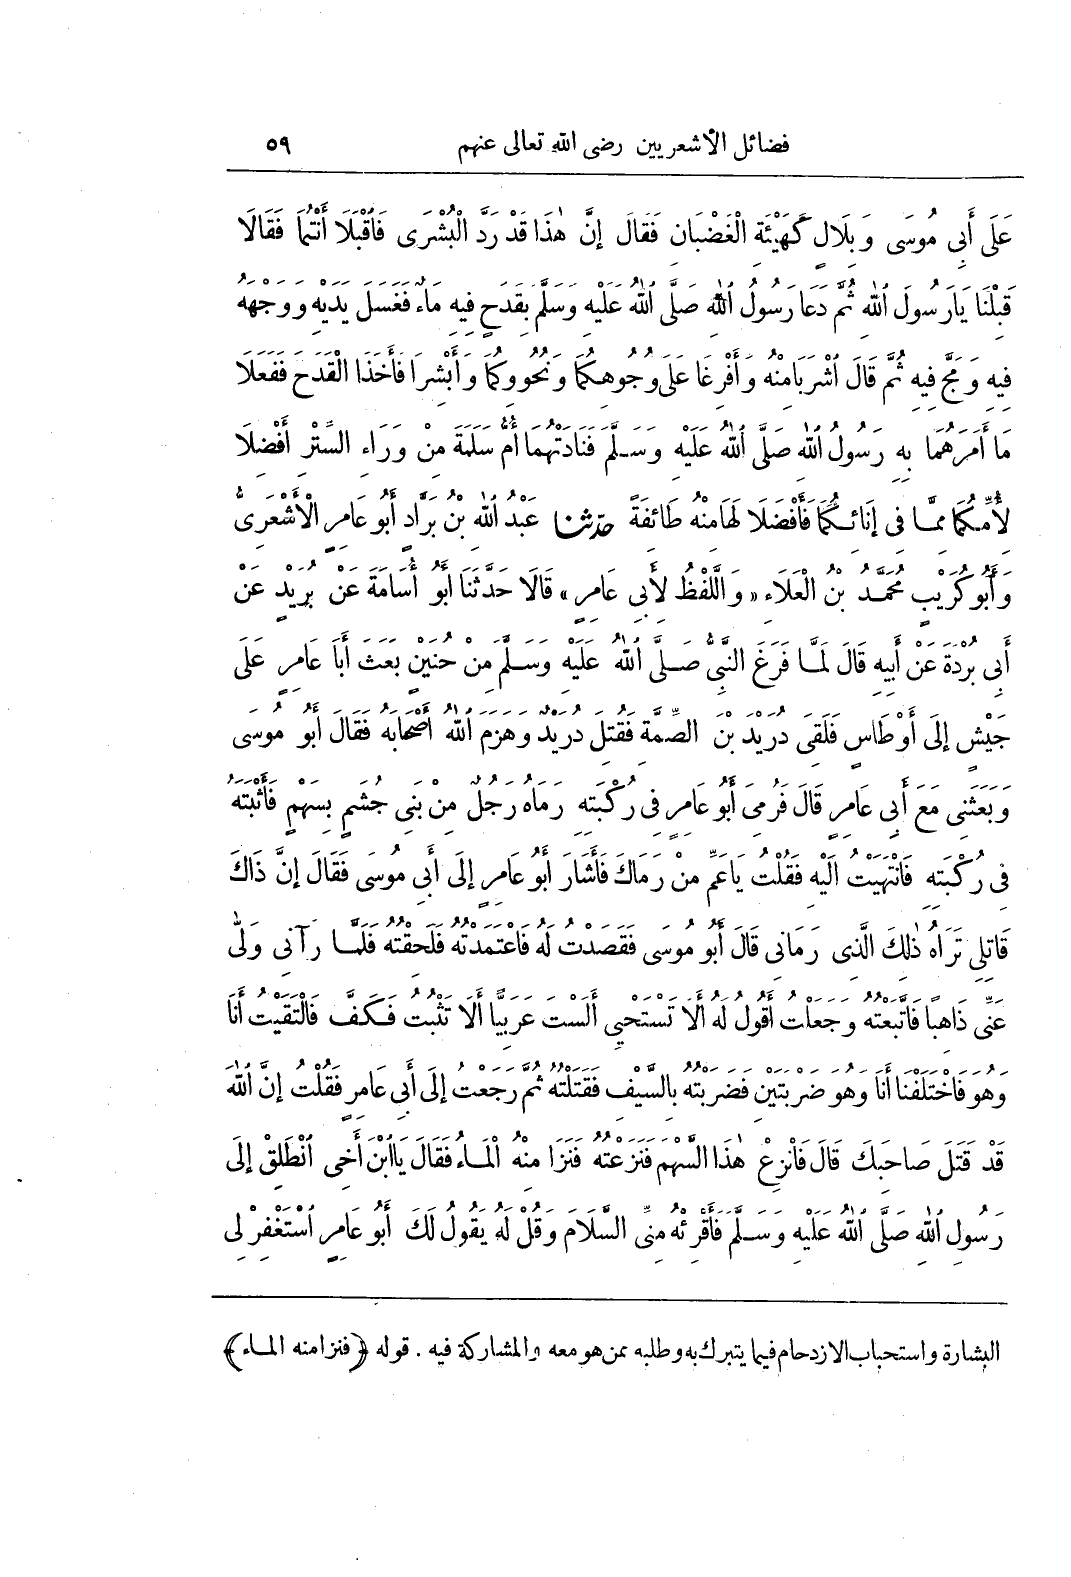 فضائل الأشعريين رضى الله تعالى عنهم ٥٩
عَلَى أَبِى مُوسَى وَبِلَالٍ كَهَيْئَةِ الْغَضْبَانِ فَقَالَ إِنَّ هٰذَا قَدْ رَدَّ الْبُشْرَى فَاقْبَلَا أَنْتُمَا فَقَالَا
قَبِلْنَا يَارَسُولَ اللهِ ثُمَّ دَعَا رَسُولُ اللهِ صَلَّى اللهُ عَلَيْهِ وَسَلَّمَ بِقَدَحٍ فِيهِ مَاءٌ فَغَسَلَ يَدَيْهِ وَوَجْهَهُ
فِيهِ وَمَجَّ فِيهِ ثُمَّ قَالَ اشْرَبَا مِنْهُ وَأَفْرِغَا عَلَى وُجُوهِكُمَا وَنُحُورِكُمَا وَأَبْشِرَا فَأَخَذَا الْقَدَحَ فَفَعَلَا
مَا أَمَرَهُمَا بِهِ رَسُولُ اللهِ صَلَّى اللهُ عَلَيْهِ وَسَلَّمَ فَنَادَتْهُمَا أُمُّ سَلَمَةَ مِنْ وَرَاءِ السِّتْرِ أَفْضِلَا
لِأُمِّكُمَا مِمَّا فِى إِنَائِكُمَا فَأَفْضَلَا لَهَا مِنْهُ طَائِفَةً حَدَّثَنَا عَبْدُ اللهِ بْنُ بَرَّادٍ أَبُو عَامِرٍ الْأَشْعَرِىُّ
وَأَبُو كُرَيْبٍ مُحَمَّدُ بْنُ الْعَلَاءِ «وَاللَّفْظُ لِأَبِى عَامِرٍ» قَالَا حَدَّثَنَا أَبُو أُسَامَةَ عَنْ بُرَيْدٍ عَنْ
أَبِى بُرْدَةَ عَنْ أَبِيهِ قَالَ لَمَّا فَرَغَ النَّبِىُّ صَلَّى اللهُ عَلَيْهِ وَسَلَّمَ مِنْ حُنَيْنٍ بَعَثَ أَبَا عَامِرٍ عَلَى
جَيْشٍ إِلَى أَوْطَاسٍ فَلَقِىَ دُرَيْدَ بْنَ الصِّمَّةِ فَقُتِلَ دُرَيْدٌ وَهَزَمَ اللهُ أَصْحَابَهُ فَقَالَ أَبُو مُوسَى
وَبَعَثَنِى مَعَ أَبِى عَامِرٍ قَالَ فَرُمِىَ أَبُو عَامِرٍ فِى رُكْبَتِهِ رَمَاهُ رَجُلٌ مِنْ بَنِى جُشَمٍ بِسَهْمٍ فَأَثْبَتَهُ
فِى رُكْبَتِهِ فَانْتَهَيْتُ اِلَيْهِ فَقُلْتُ يَاعَمِّ مَنْ رَمَاكَ فَأَشَارَ أَبُو عَامِرٍ إِلَى أَبِى مُوسَى فَقَالَ إِنَّ ذَاكَ
قَاتِلِى تَرَاهُ ذٰلِكَ الَّذِى رَمَانِى قَالَ أَبُو مُوسَى فَقَصَدْتُ لَهُ فَاعْتَمَدْتُهُ فَلَحِقْتُهُ فَلَمَّا رَآنِى وَلَّى
عَنِّى ذَاهِبًا فَاتَّبَعْتُهُ وَجَعَلْتُ أَقُولُ لَهُ أَلَا تَسْتَحْيِى أَلَسْتَ عَرَبِيًّا أَلَا تَثْبُتُ فَكَفَّ فَالْتَقَيْتُ أَنَا
وَهُوَ فَاخْتَلَفْنَا أَنَا وَهُوَ ضَرْبَتَيْنِ فَضَرَبْتُهُ بِالسَّيْفِ فَقَتَلْتُهُ ثُمَّ رَجَعْتُ إِلَى أَبِى عَامِرٍ فَقُلْتُ إِنَّ اللهَ
قَدْ قَتَلَ صَاحِبَكَ قَالَ فَانْزِعْ هٰذَا السَّهْمَ فَنَزَعْتُهُ فَنَزَا مِنْهُ الْمَاءُ فَقَالَ يَاابْنَ أَخِى انْطَلِقْ إِلَى
رَسُولِ اللهِ صَلَّى اللهُ عَلَيْهِ وَسَلَّمَ فَأَقْرِئْهُ مِنِّى السَّلَامَ وَقُلْ لَهُ يَقُولُ لَكَ أَبُو عَامِرٍ اسْتَغْفِرْ لِى
البشارة واستحباب الازدحام فيما يتبرك به وطلبه ممن هو معه والمشاركة فيه . قوله ﴿فنزا منه الماء﴾